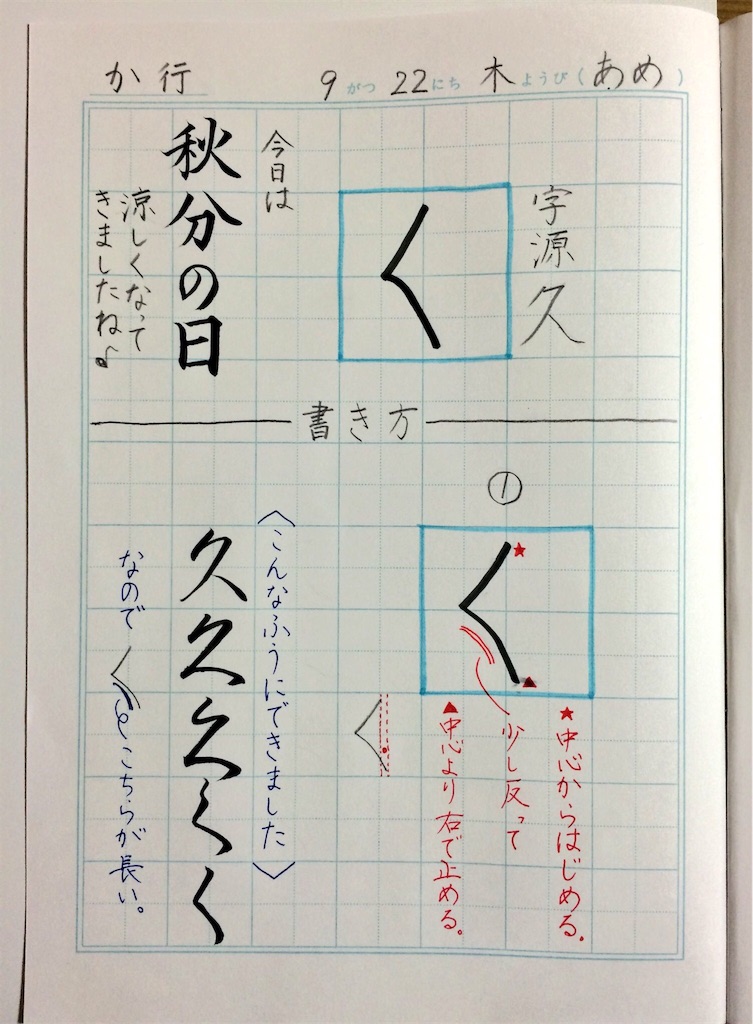 か行
9がつ22にち 木ようび(あめ)
字源 久
く
今日は
秋分の日
涼しくなって
きましたね♪
書き方
①
く
★中心からはじめる。
少し反って
▲中心より右で止める。
〈こんなふうにできました〉
久久久くく
なので
こちらが長い。